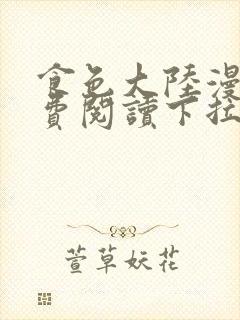 食色大陸漫
費閱讀下拉
萱草妖花